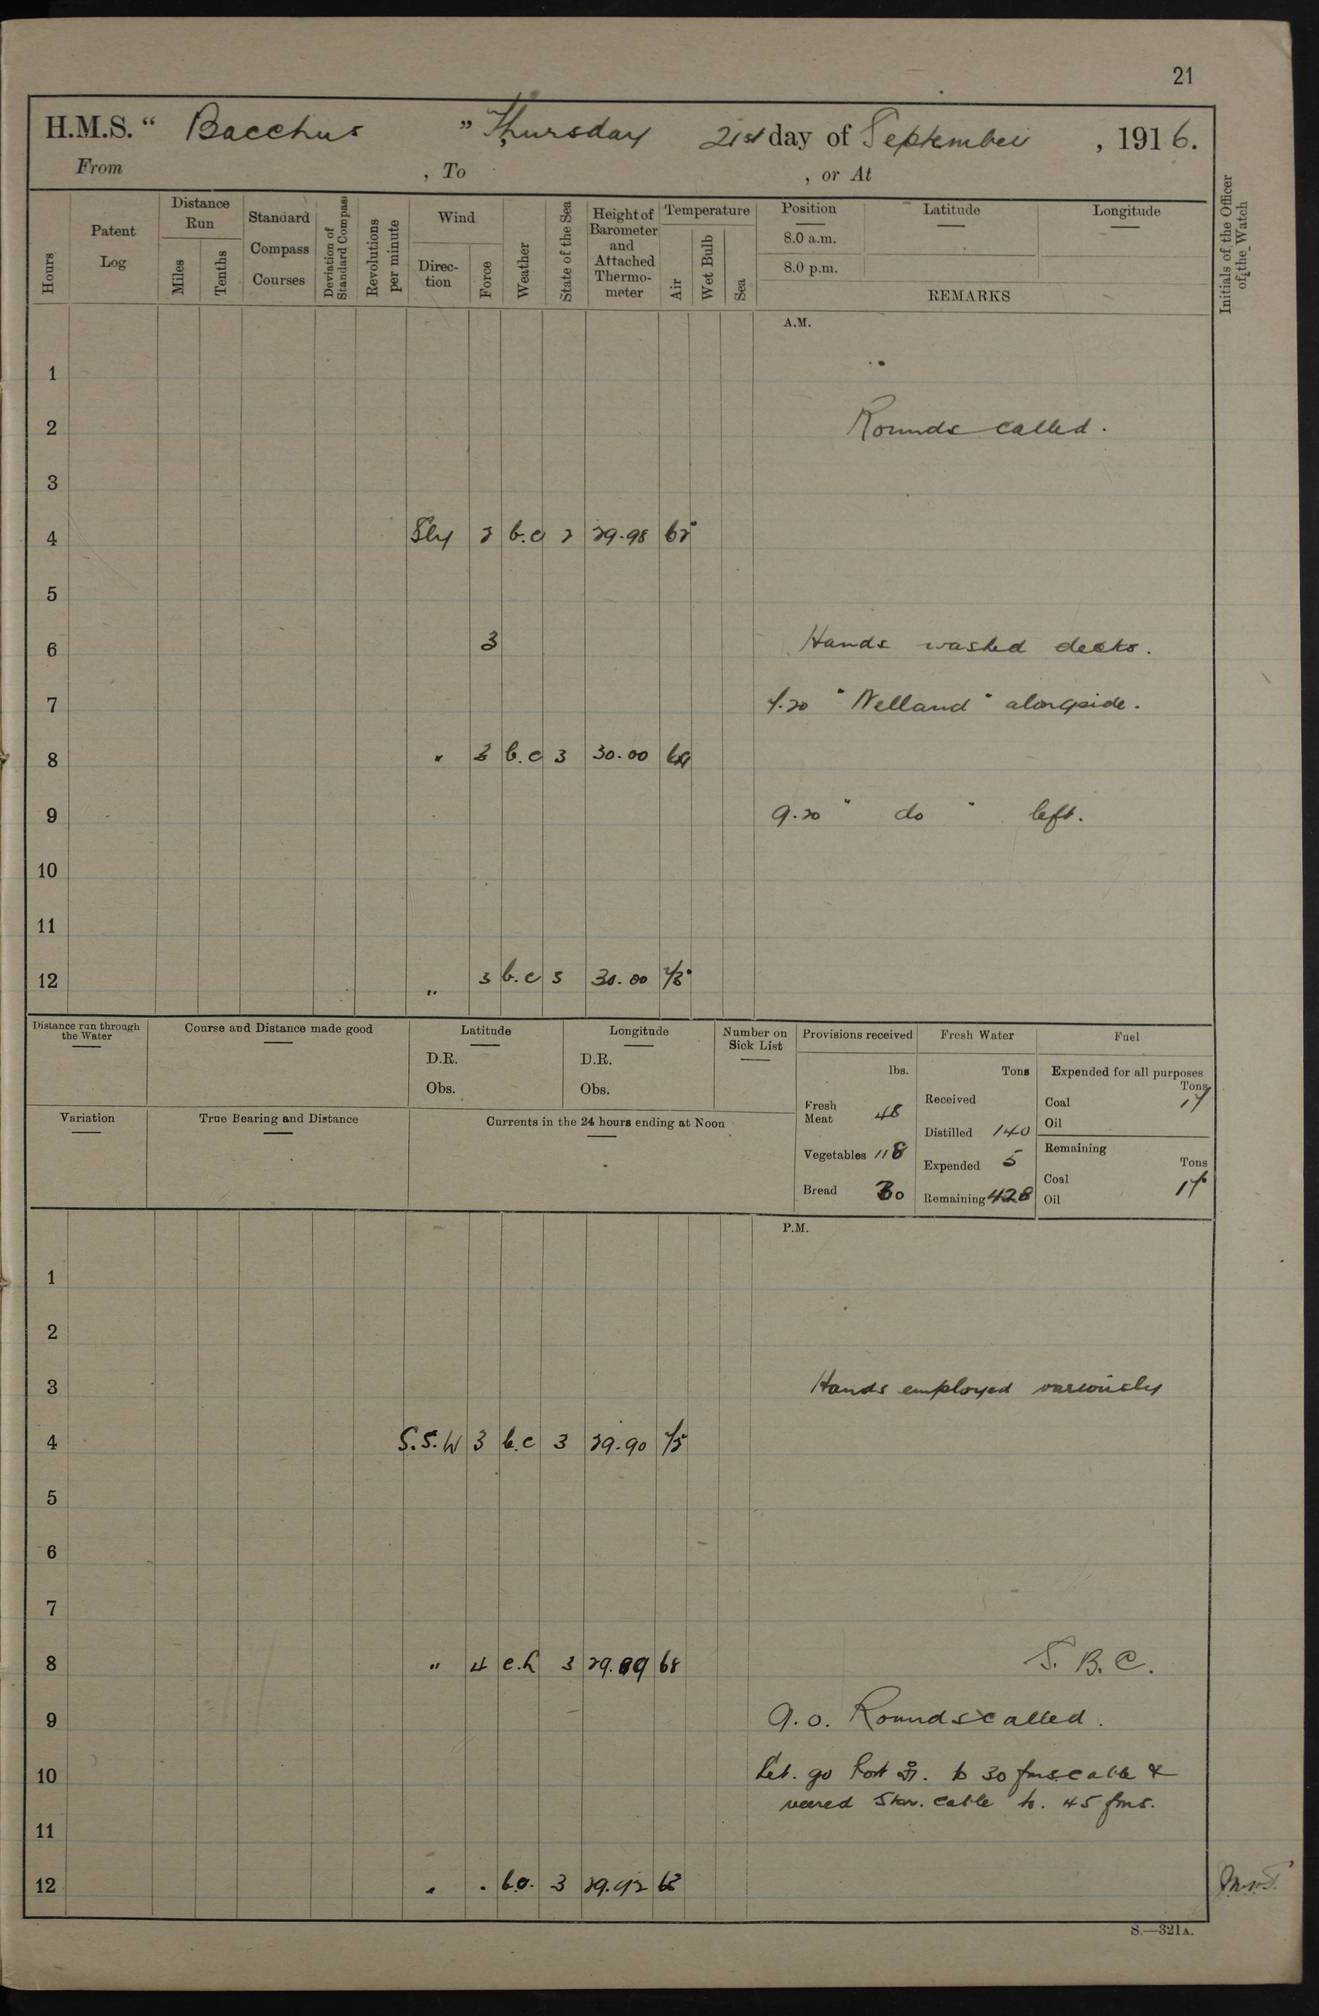 21
H.M.S. “ Bacchus ” Thursday 21st day of September , 1916.
From , To , or At
Hours
Patent Log
Distance Run
Miles
Tenths
Standard Compass Courses
Deviation of Standard Compass
Revolutions per minute
Wind
Direc-tion
Force
Weather
State of the Sea
Height of Barometer and Attached Thermo-meter
Temperature
Air
Wet Bulb
Sea
Position Latitude Longitude
8.0 a.m.
8.0 p.m.
REMARKS
Initials of the Officer of the Watch
A.M.
1
2 Rounds called.
3
4 Sly 2 b.c 2 29.98 62°
5
6 3 Hands washed decks.
7 7.20 "Welland" alongside.
8 " 3 b.c 3 30.00 64
9 9.20 " do " left.
10
11
12 " 3 b.c 3 30.00 73°
Distance run through the Water
Course and Distance made good
Latitude
D.R.
Obs.
Longitude
D.R.
Obs.
Number on Sick List
Variation
True Bearing and Distance
Currents in the 24 hours ending at Noon
Provisions received
lbs.
Fresh Meat 48
Vegetables 118
Bread 30
Fresh Water
Tons
Received
Distilled 140
Expended 5
Remaining 428
Fuel
Expended for all purposes
Tons
Coal 17
Oil
Remaining
Tons
Coal
Oil
P.M.
1
2
3 Hands employed variously
4 S.S.W 3 b.c 3 29.90 75
5
6
7
8 " 4 c.h 3 29.89 68 S.B.C.
9 9.0. Rounds called.
10 Let. go Port to 30 fms cable &
veered Star. cable to. 45 fms.
11
12 " . b.c. 3 63
S.—321A.